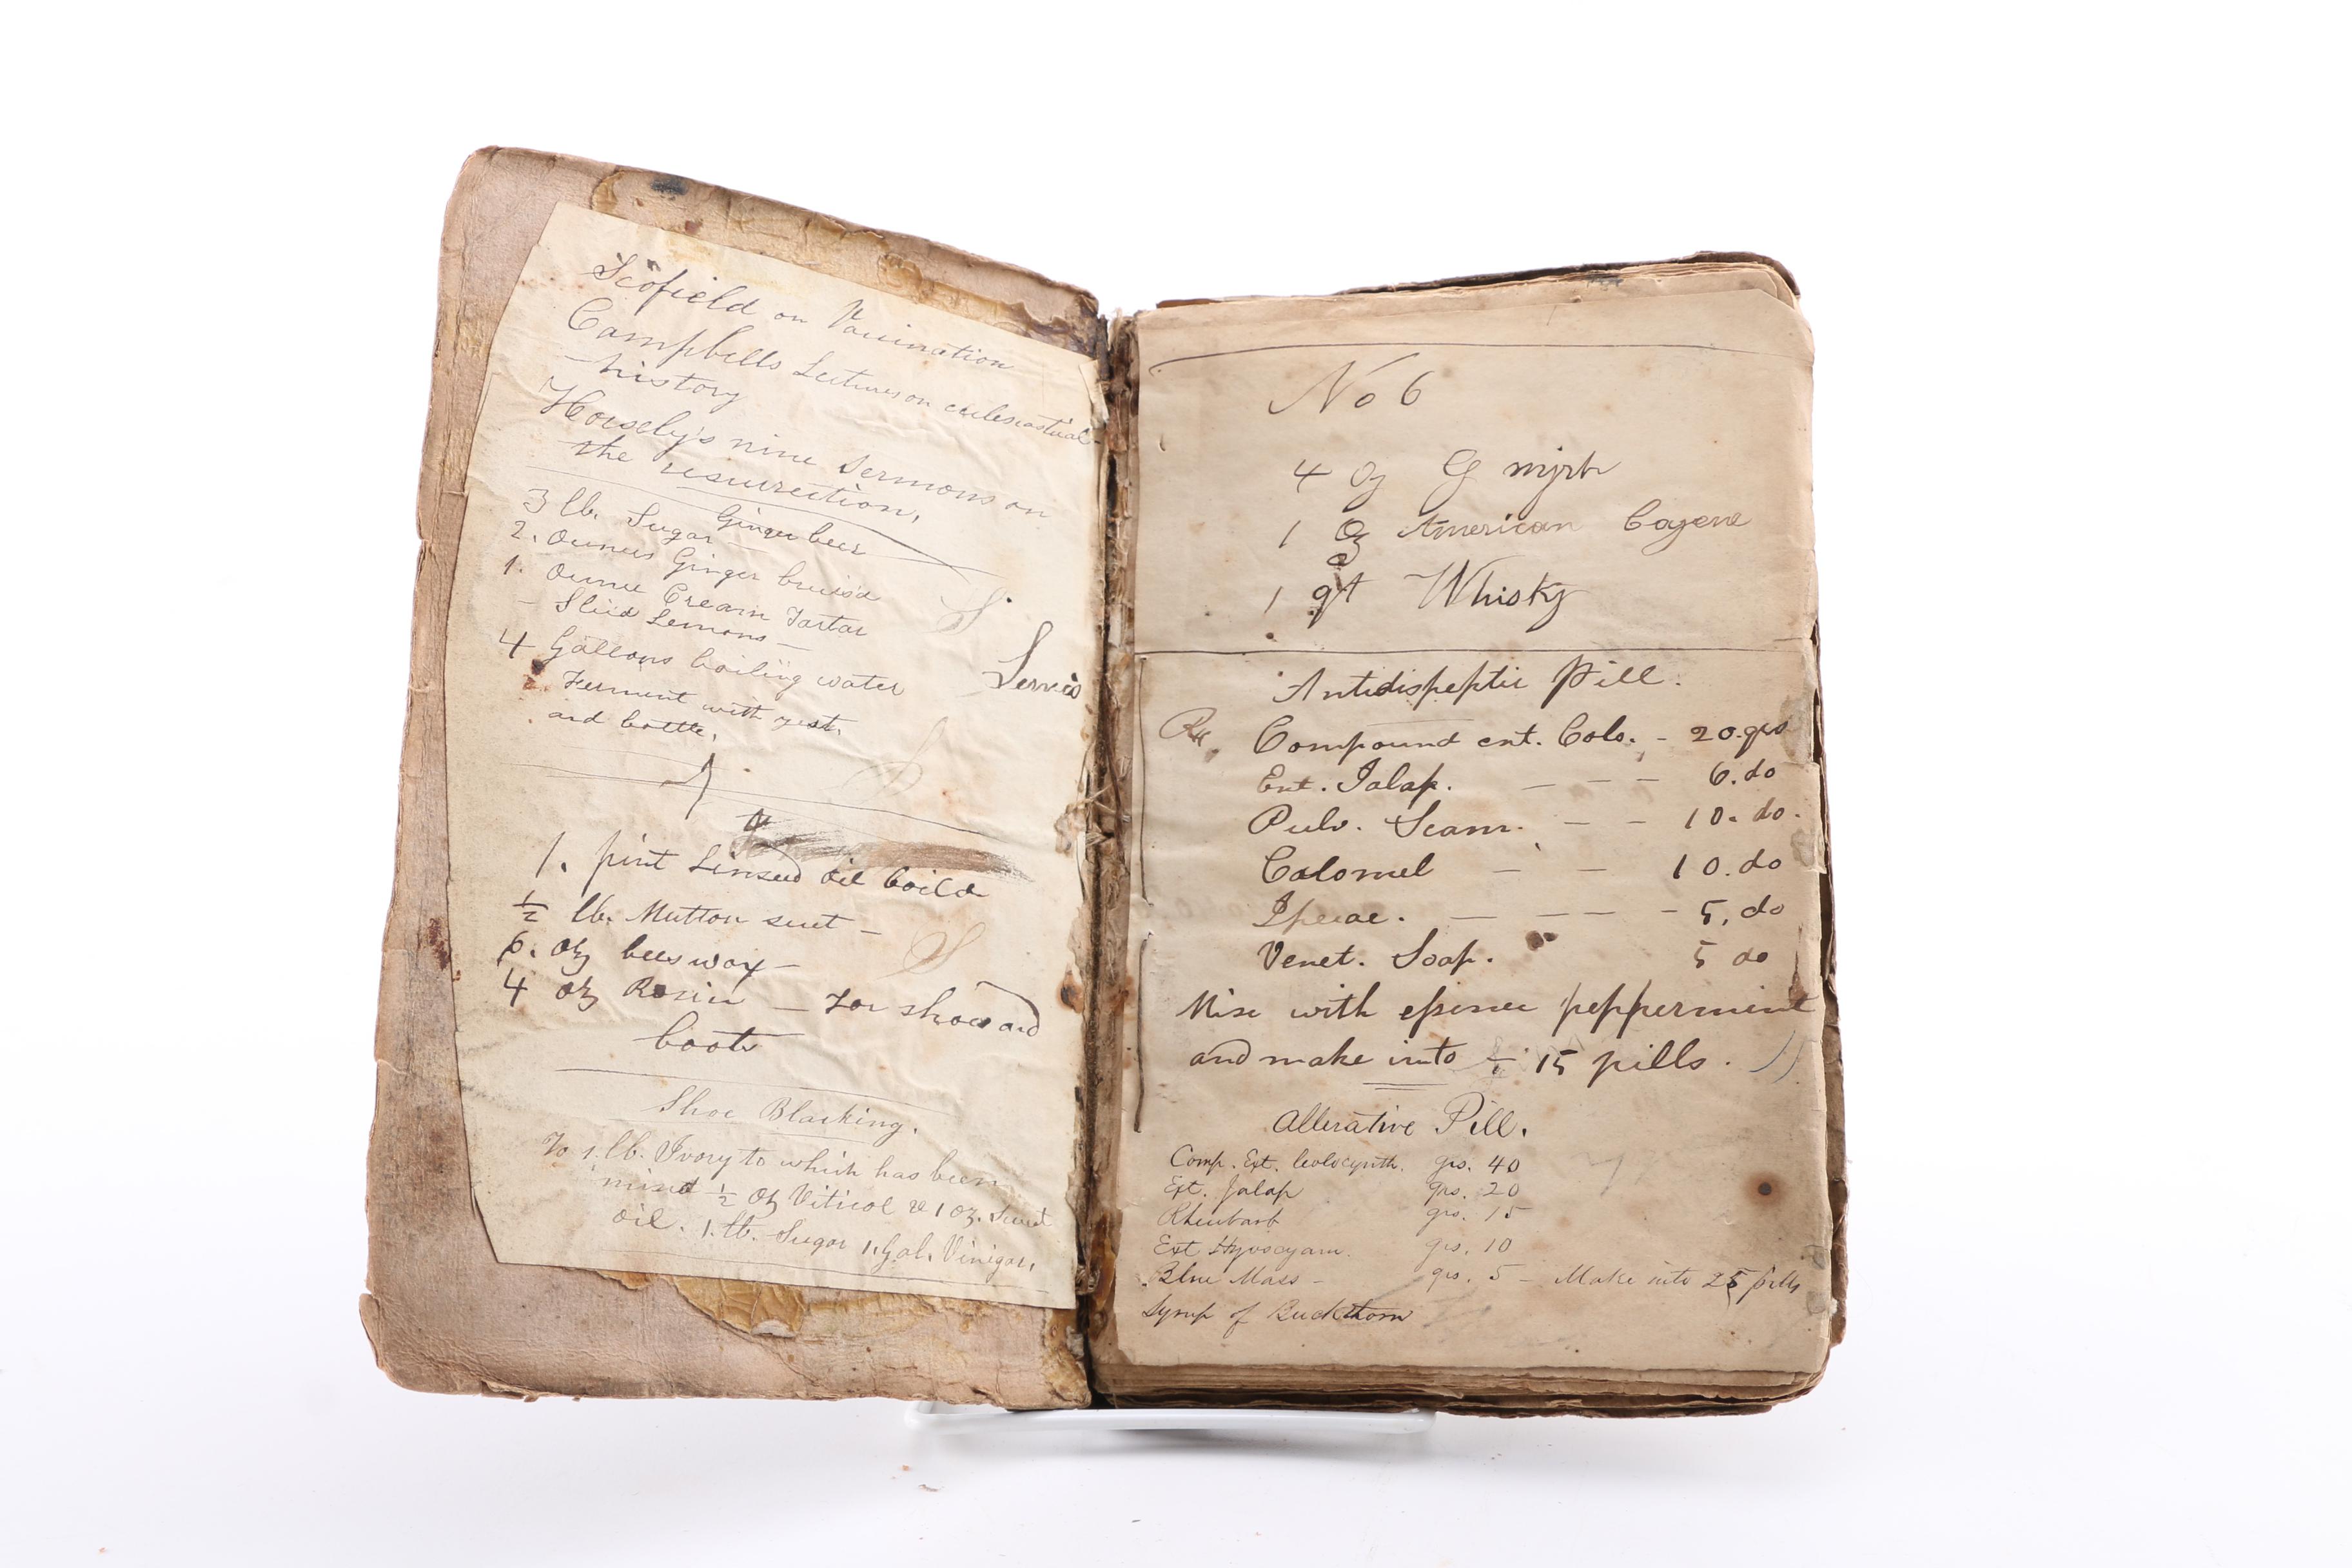 Scofield on Vaccination
Campbells Lectures on eclesiastical
history
Horsely's nine Sermons on
the resurrection,
Ginger beer
3 lb. Sugar —
2. Ounces Ginger bruisd
1. Ounce Cream Tartar
— Slicd Lemons —
4 Gallons boiling water
Ferment with yest,
and bottle,
S
S
1. pint Linseed oil boild
½ lb. Mutton suet —
6. oz bees wax —
4 oz Rosin — For shoes and
boots
S
Shoe Blacking.
To 1. lb. Ivory to which has been
mixd ½ oz Vitriol & 1 oz. Sweet
oil. 1. lb. Sugar 1. Gal. Vinigar.
No 6
4 Oz G myrh
1 Oz American Cayene
1 qt Whisky
Antidispeptic Pill.
Rx, Compound ext. Colo. - 20. grs
Ext. Jalap. — — — 6. do
Pulv. Scam. — — — 10. do.
Calomel — — 10. do
Ipecac. — — — - 5, do
Venet. Soap. 5 do
Mix with essence peppermint
and make into 15 pills.
Allerative Pill.
Comp. Ext. Colocynth. grs. 40
Ext. Jalap grs. 20
Rheubarb grs. 15
Ext Hyoscyam. grs. 10
Blue Mass - grs. 5 - Make into 25 pills
Syrup of Buckthorn